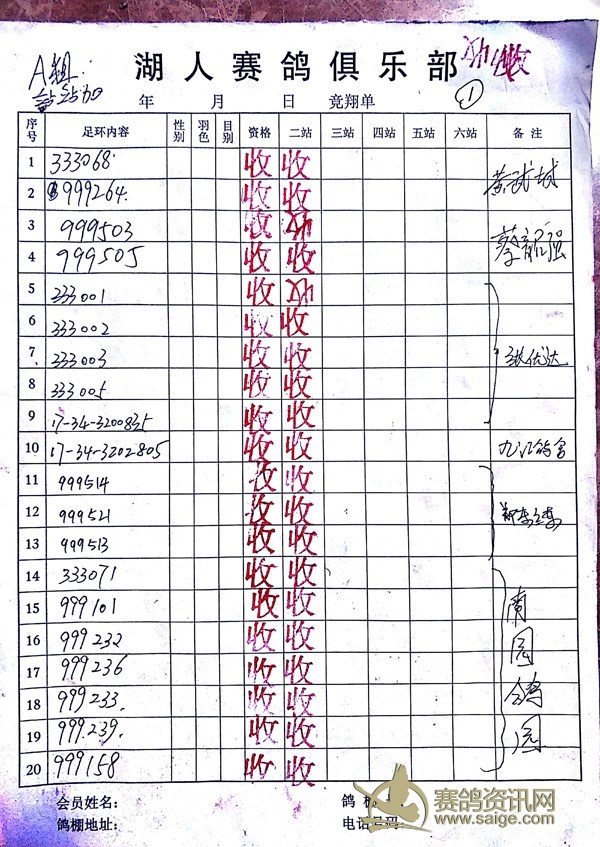 A组
湖人赛鸽俱乐部 收
①
年 月 日 竞翔单
序号 足环内容 性别 羽色 目别 资格 二站 三站 四站 五站 六站 备注
1 333068 收 收
2 999264 收 收
3 999503 收 收
4 999505 收 收 蔡龍强
5 333001 收 收
6 333002 收 收
7 333003 收 收
8 333005 收 收
9 17-34-3200835 收 收
10 17-34-3202805 收 收 九江鸽舍
11 999514 收 收
12 999521 收 收
13 999513 收 收
14 333071 收 收
15 999101 收 收
16 999232 收 收
17 999236 收 收
18 999233 收 收
19 999239 收 收
20 999158 收 收
园鸽
会员姓名: 鸽
鸽棚地址: 电话号码:
赛鸽资讯网
www.saige.com